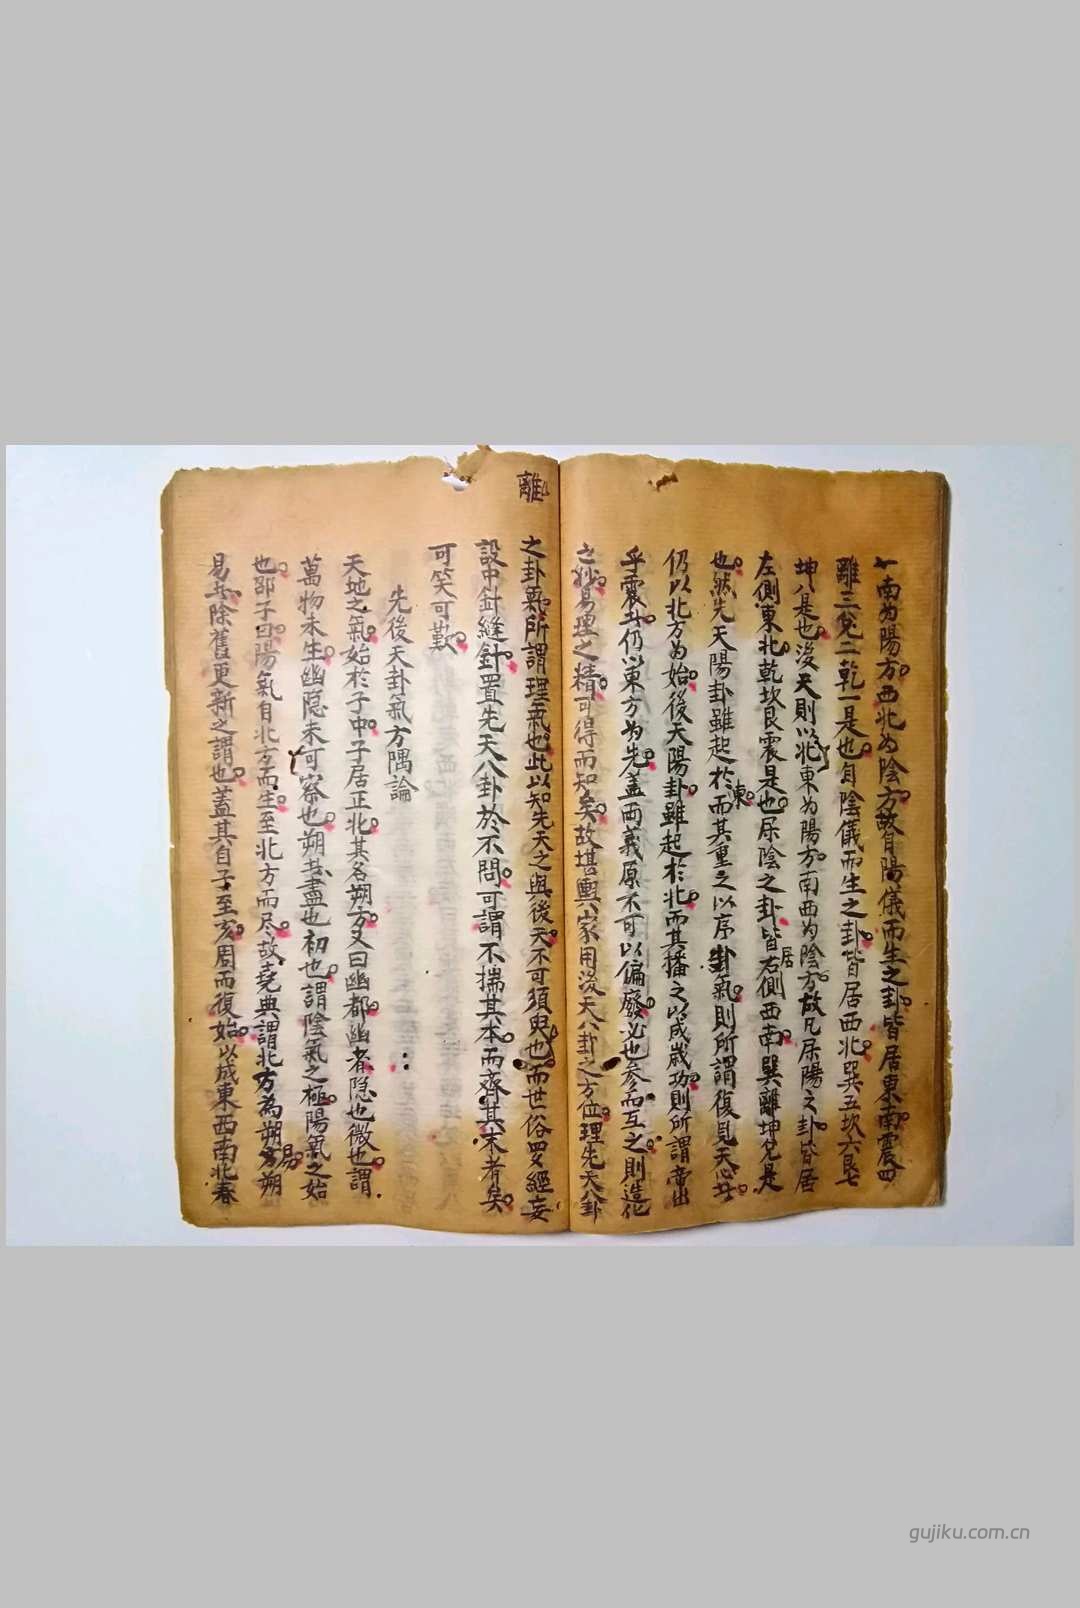 南為陽方西北為陰方故自陽儀而生之卦皆居東南震四
離三兌二乾一是也自陰儀而生之卦皆居西北巽五坎六艮七
坤八是也後天則以北東為陽方南西為陰方故凡居陽之卦皆居
左側東北乾坎艮震是也居陰之卦皆居右側西南巽離坤兌是
也然先天陽卦雖起於東而其重之以序卦氣則所謂復見天心者
仍以北方為始後天陽卦雖起於北而其播之以成歲功則所謂帝出
乎震者仍以東方為先蓋兩義原不可以偏廢必也參而互之則造化
之妙易理之精可得而知矣故堪輿家用後天八卦之方位理先天八卦
離
之卦氣所謂理氣也此以知先天之與後天不可須臾也而世俗罗經妄
設中針縫針置先天八卦於不問可謂不揣其本而齊其末者矣
可笑可歎
先後天卦氣方隅論
天地之氣始於子中子居正北其名朔方又曰幽都幽者隐也微也謂
萬物未生幽隐未可察也朔者盡也初也謂陰氣之極陽氣之始
也邵子曰陽氣自北方而生至北方而尽故堯典謂北方為朔易朔
易者除舊更新之謂也蓋其自子至亥周而復始以成東西南北春
gujiku.com.cn